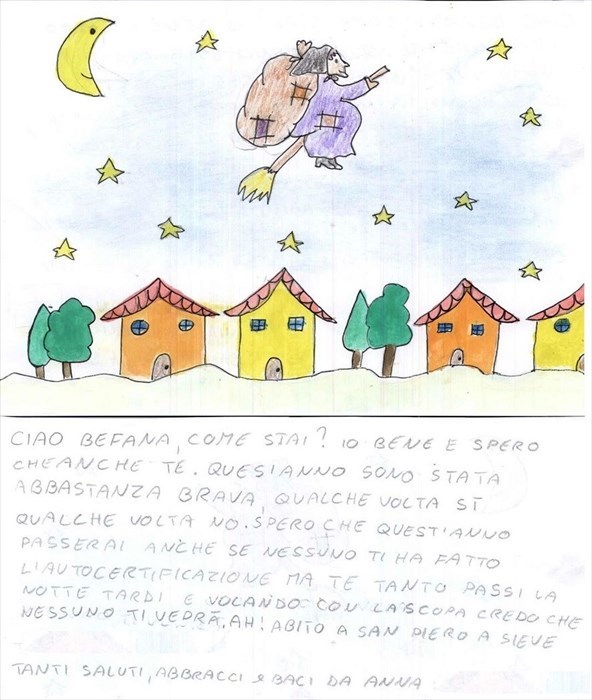 CIAO BEFANA, COME STAI? IO BENE E SPERO
CHEANCHE TE. QUESIANNO SONO STATA
ABBASTANZA BRAVA, QUALCHE VOLTA SÌ
QUALCHE VOLTA NO. SPERO CHE QUEST'ANNO
PASSERAI ANCHE SE NESSUNO TI HA FATTO
L'AUTOCERTIFICAZIONE MA TE TANTO PASSI LA
NOTTE TARDI E VOLANDO CON LA SCOPA CREDO CHE
NESSUNO TI VEDRÀ, AH! ABITO A SAN PIERO A SIEVE
TANTI SALUTI, ABBRACCI e BACI DA ANNA